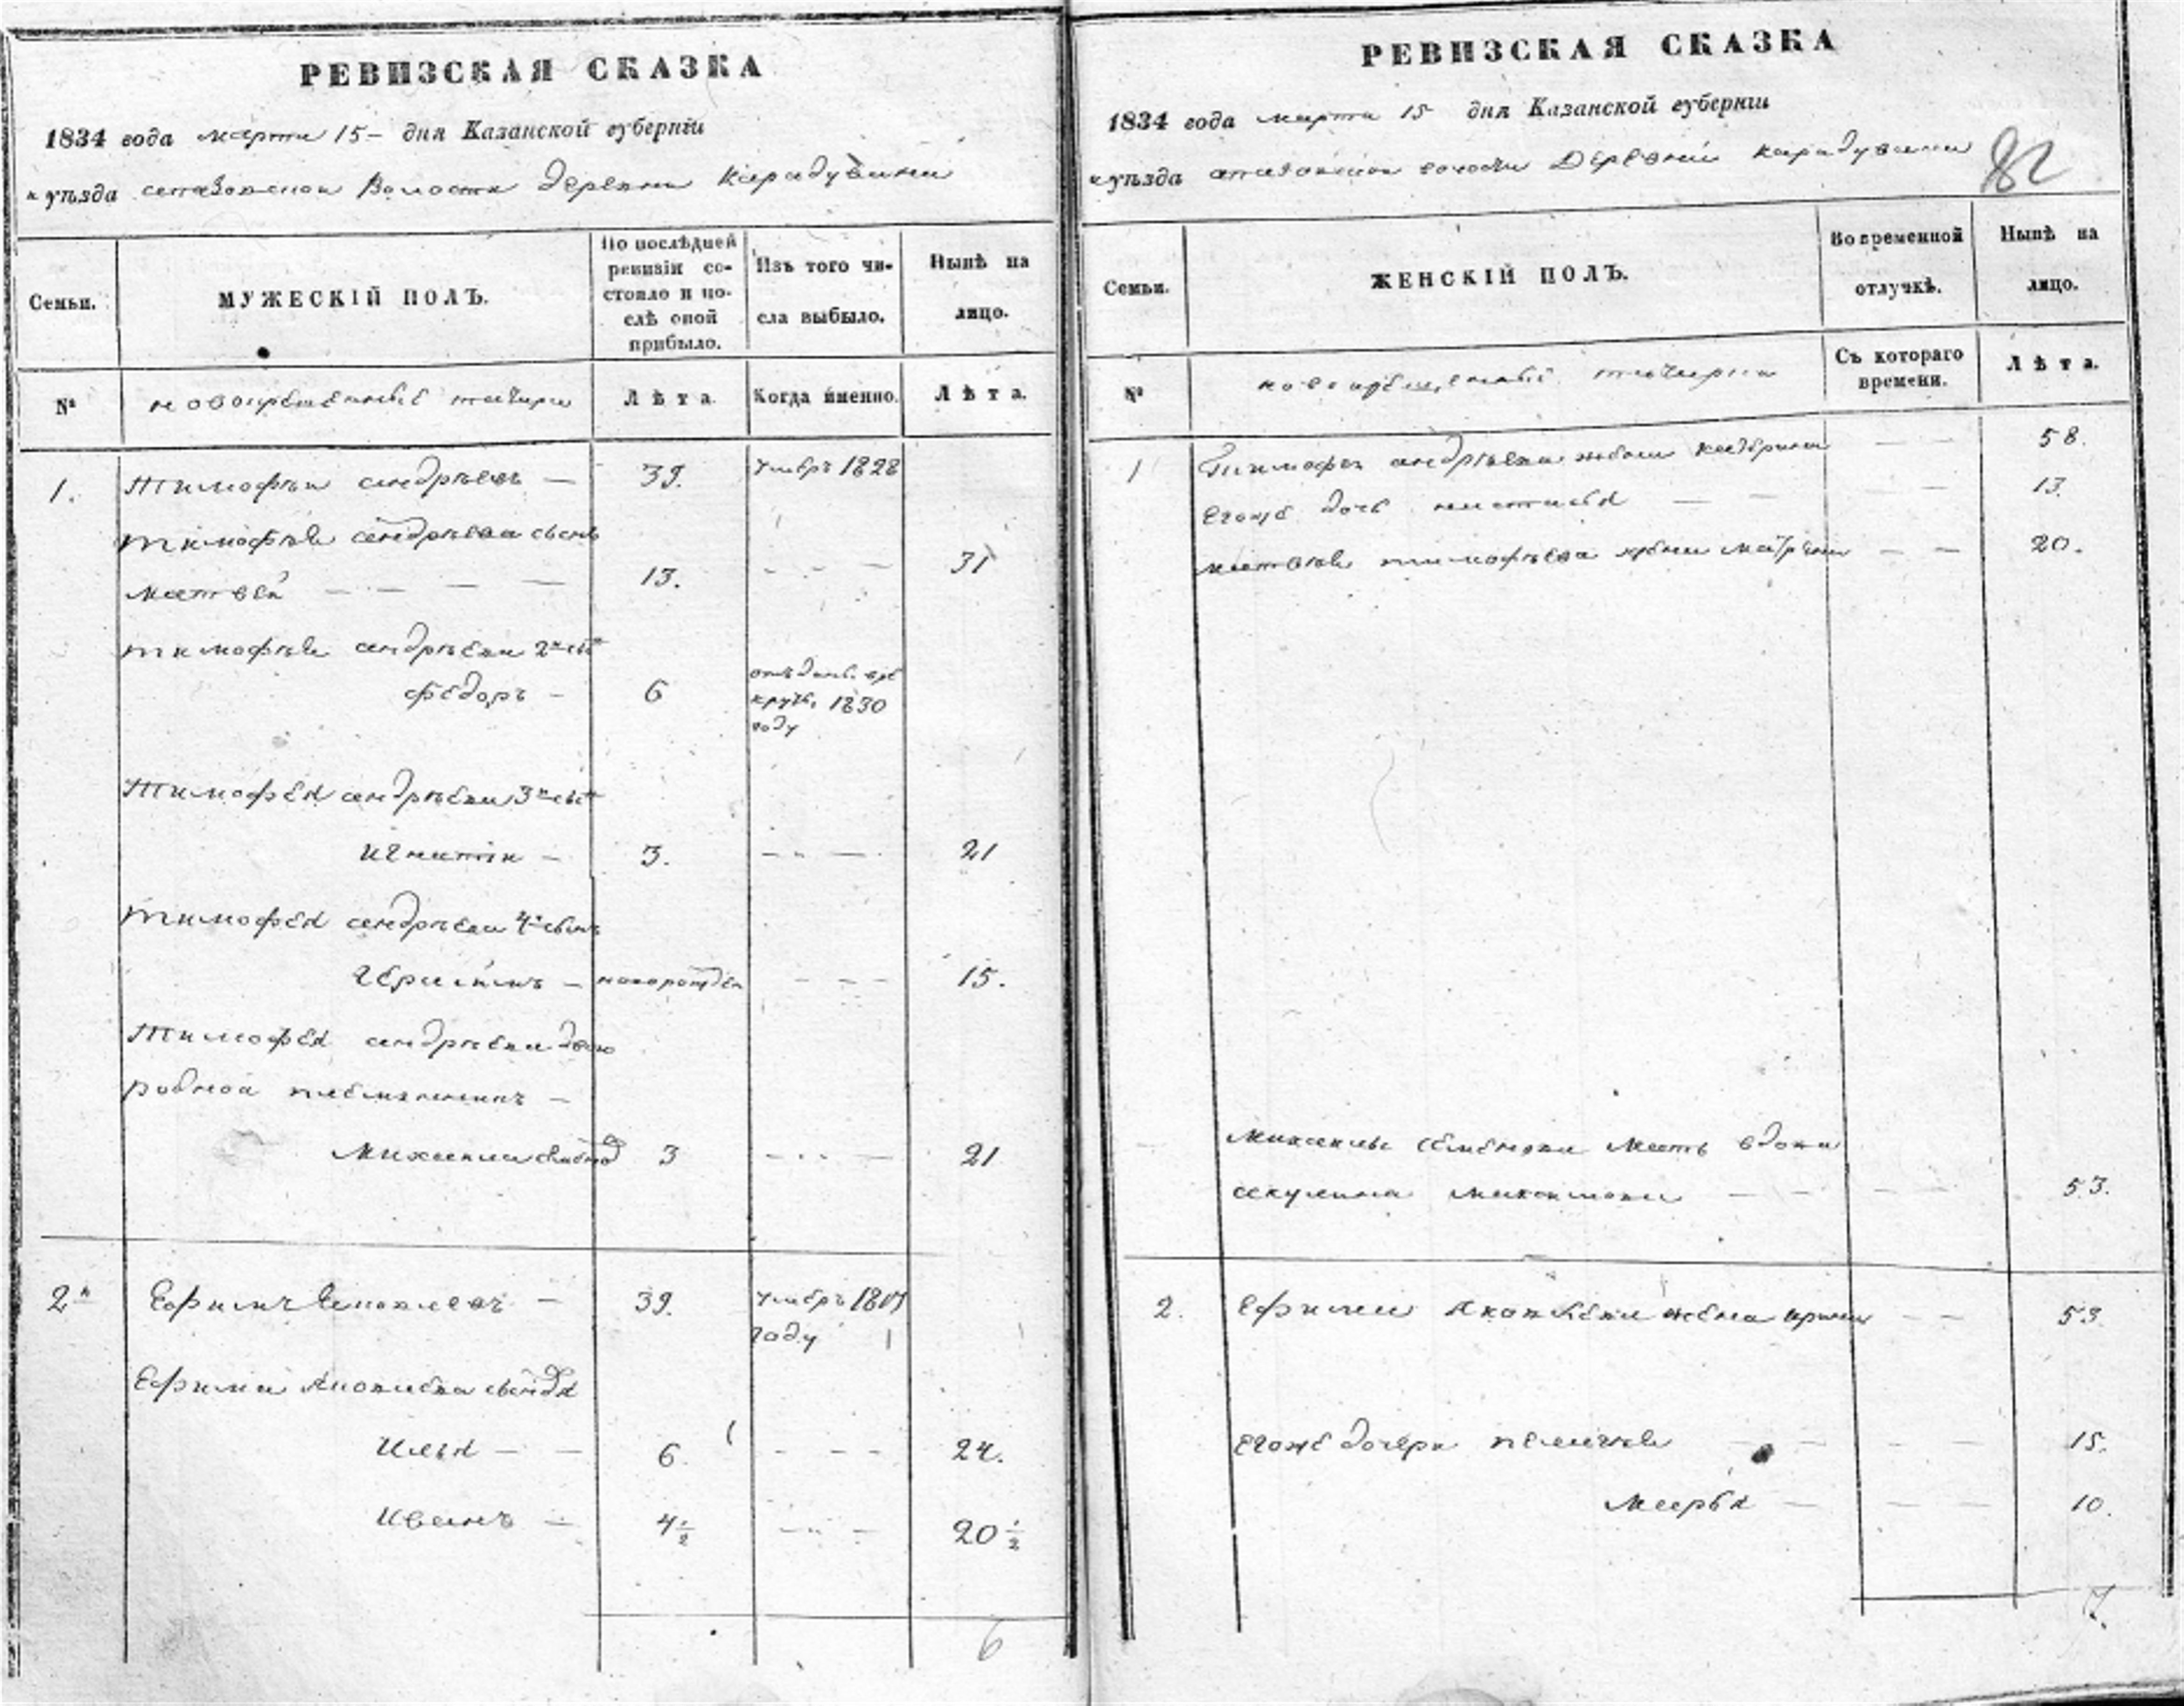 РЕВИЗСКАЯ СКАЗКА
1834 года марта 15 – дня Казанской губернїи
уѣзда Волости деревни Карадувани
Семьи.
МУЖЕСКІЙ ПОЛЪ.
По послѣдней ревизіи со-
стояло и по-
слѣ оной
прибыло.
Изъ того чи-
сла выбыло.
Нынѣ на
лицо.
№
новокрещенные татары
Лѣта.
Когда именно.
Лѣта.
1. Тимофѣй андрѣевъ — 39. умѣръ 1828
Тимофѣя андрѣева сынъ
матвей — — — 13. - - - 31
тимофѣя андрѣева 2й сынъ
федоръ — 6 отданъ в ре
круты 1830
году
Тимофея андрѣева 3й сынъ
Игнатій — 3. - - - 21
тимофея андрѣева 4й сынъ
Герасимъ — новорожден - - - 15.
Тимофея андрѣева двою
родной племянникъ —
Михаила 3 - - - 21
2й Ефимъ — 39. умѣръ
году
Ефима сыновья
Илья — — 6. - - - 24.
Иванъ — 4½ - - - 20½
6
РЕВИЗСКАЯ СКАЗКА
1834 года марта 15 дня Казанской губернїи
уѣзда волости Деревни карадувани
82
Семьи.
ЖЕНСКІЙ ПОЛЪ.
Во временной
отлучкѣ.
Нынѣ на
лицо.
№
новокрещенные татарки
Съ котораго
времени.
Лѣта.
1 Тимофея андрѣева жена катерина — — 58.
Егоже дочь настасья — — — — 13.
матвѣя тимофѣева жена матрена — — 20.
Михаилы семенова мать вдова
акулина — — — — 53.
2. Ефима жена ирина — — 53.
Егоже дочери — — — 15.
Марья — — — — 10.
7.